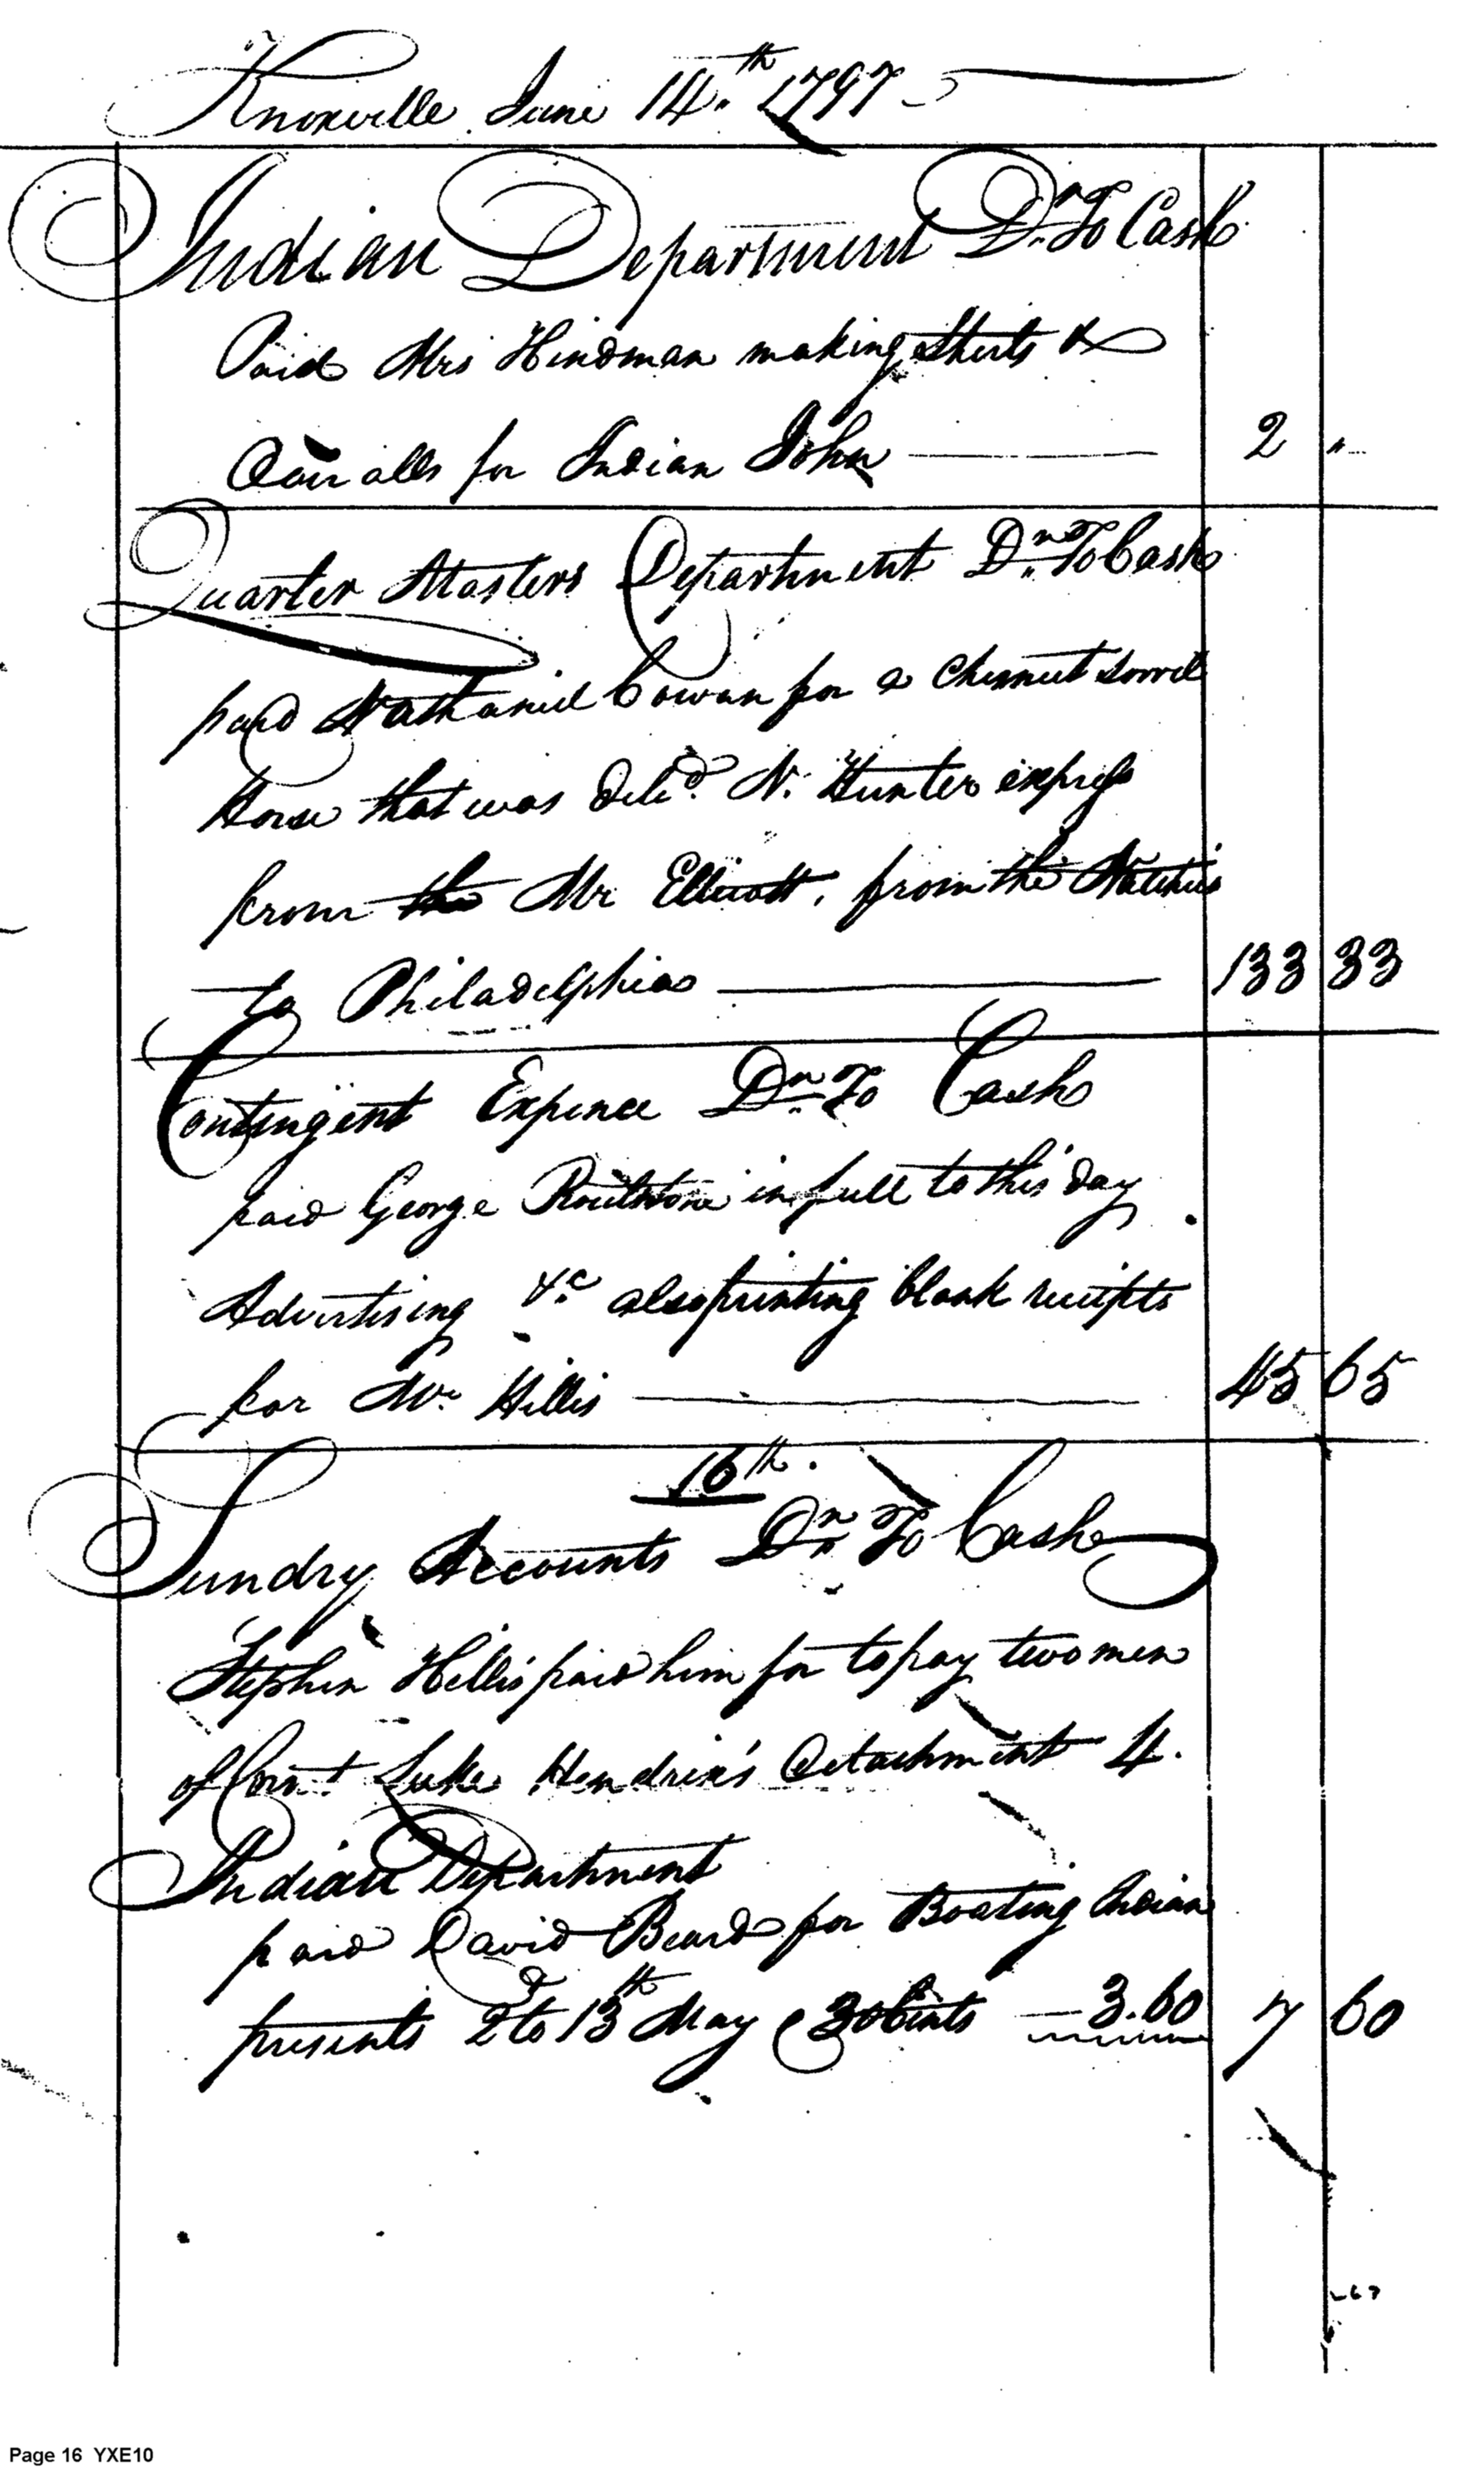 Knoxville June 14.th 1797
Indian Department Dr. To Cash
Paid Mrs Hindman making Sherts &
Overalls for Indian John 2 "
Quarter Masters Department Dr. To Cash
paid Nathaniel Cowan for a Chesnut Sorrel
Horse that was Deld. N. Hunter express
from the Mr Ellicott, from the Natches
to Philadelphia 133 33
Contingent Expence Dr. To Cash
paid George Roulstone in full to this day
Advertising &c. also printing blank receipts
for Mr. Hillis 45 65
16th.
Sundry Accounts Dr. To Cash
Stephen Hillis paid him for to pay two men
of Luke Hendrix's Detachment 4.
Indian Department
paid David Beard for Boating Indian
presents 2d to 13th May @ 30 Cents 3.60 7 60
Page 16 YXE10